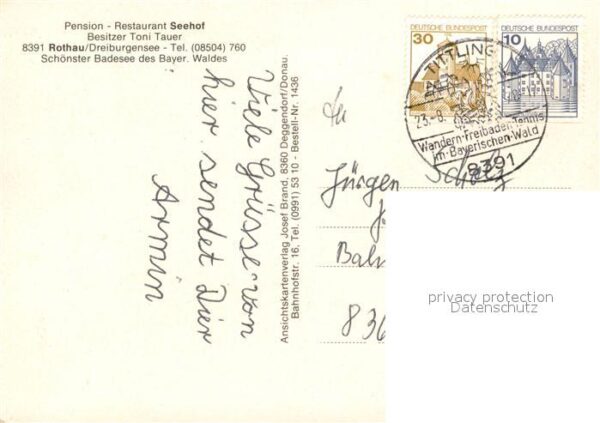 Pension - Restaurant Seehof
Besitzer Toni Tauer
8391 Rothau/Dreiburgensee - Tel. (08504) 760
Schönster Badesee des Bayer. Waldes
Viele Grüsse von
hier sendet Dir
Armin
Ansichtskartenverlag Josef Brand, 8360 Deggendorf/Donau.
Bahnhofstr. 16, Tel. (0991) 53 10 - Bestell-Nr. 1436
30
DEUTSCHE BUNDESPOST
10
DEUTSCHE BUNDESPOST
TITTLING
23.-8.
Wandern·Freibaden·Tennis
im·Bayerischen·Wald
8391
An
Jürgen
Bahn
836
privacy protection
Datenschutz